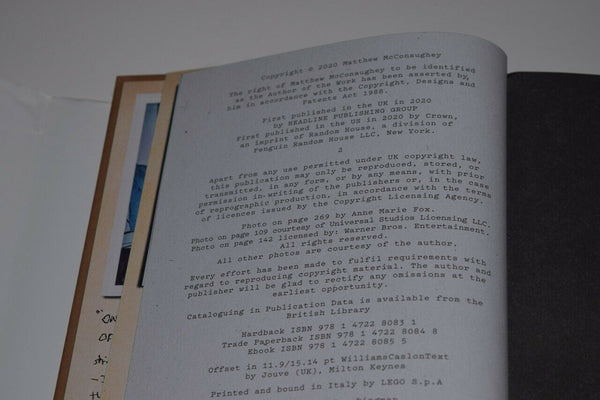 Copyright © 2020 Matthew McConaughey
The right of Matthew McConaughey to be identified
as the Author of the Work has been asserted by
him in accordance with the Copyright, Designs and
Patents Act 1988.
First published in the UK in 2020
by HEADLINE PUBLISHING GROUP
First published in the US in 2020 by Crown,
an imprint of Random House, a division of
Penguin Random House LLC, New York.
2
Apart from any use permitted under UK copyright law,
this publication may only be reproduced, stored, or
transmitted, in any form, or by any means, with prior
permission in writing of the publishers or, in the case
of reprographic production, in accordance with the terms
of licences issued by the Copyright Licensing Agency.
Photo on page 269 by Anne Marie Fox.
Photo on page 109 courtesy of Universal Studios Licensing LLC.
Photo on page 142 licensed by: Warner Bros. Entertainment.
All rights reserved.
All other photos are courtesy of the author.
Every effort has been made to fulfil requirements with
regard to reproducing copyright material. The author and
publisher will be glad to rectify any omissions at the
earliest opportunity.
Cataloguing in Publication Data is available from the
British Library
Hardback ISBN 978 1 4722 8083 1
Trade Paperback ISBN 978 1 4722 8084 8
Ebook ISBN 978 1 4722 8085 5
Offset in 11.9/15.14 pt WilliamsCaslonText
by Jouve (UK), Milton Keynes
Printed and bound in Italy by LEGO S.p.A